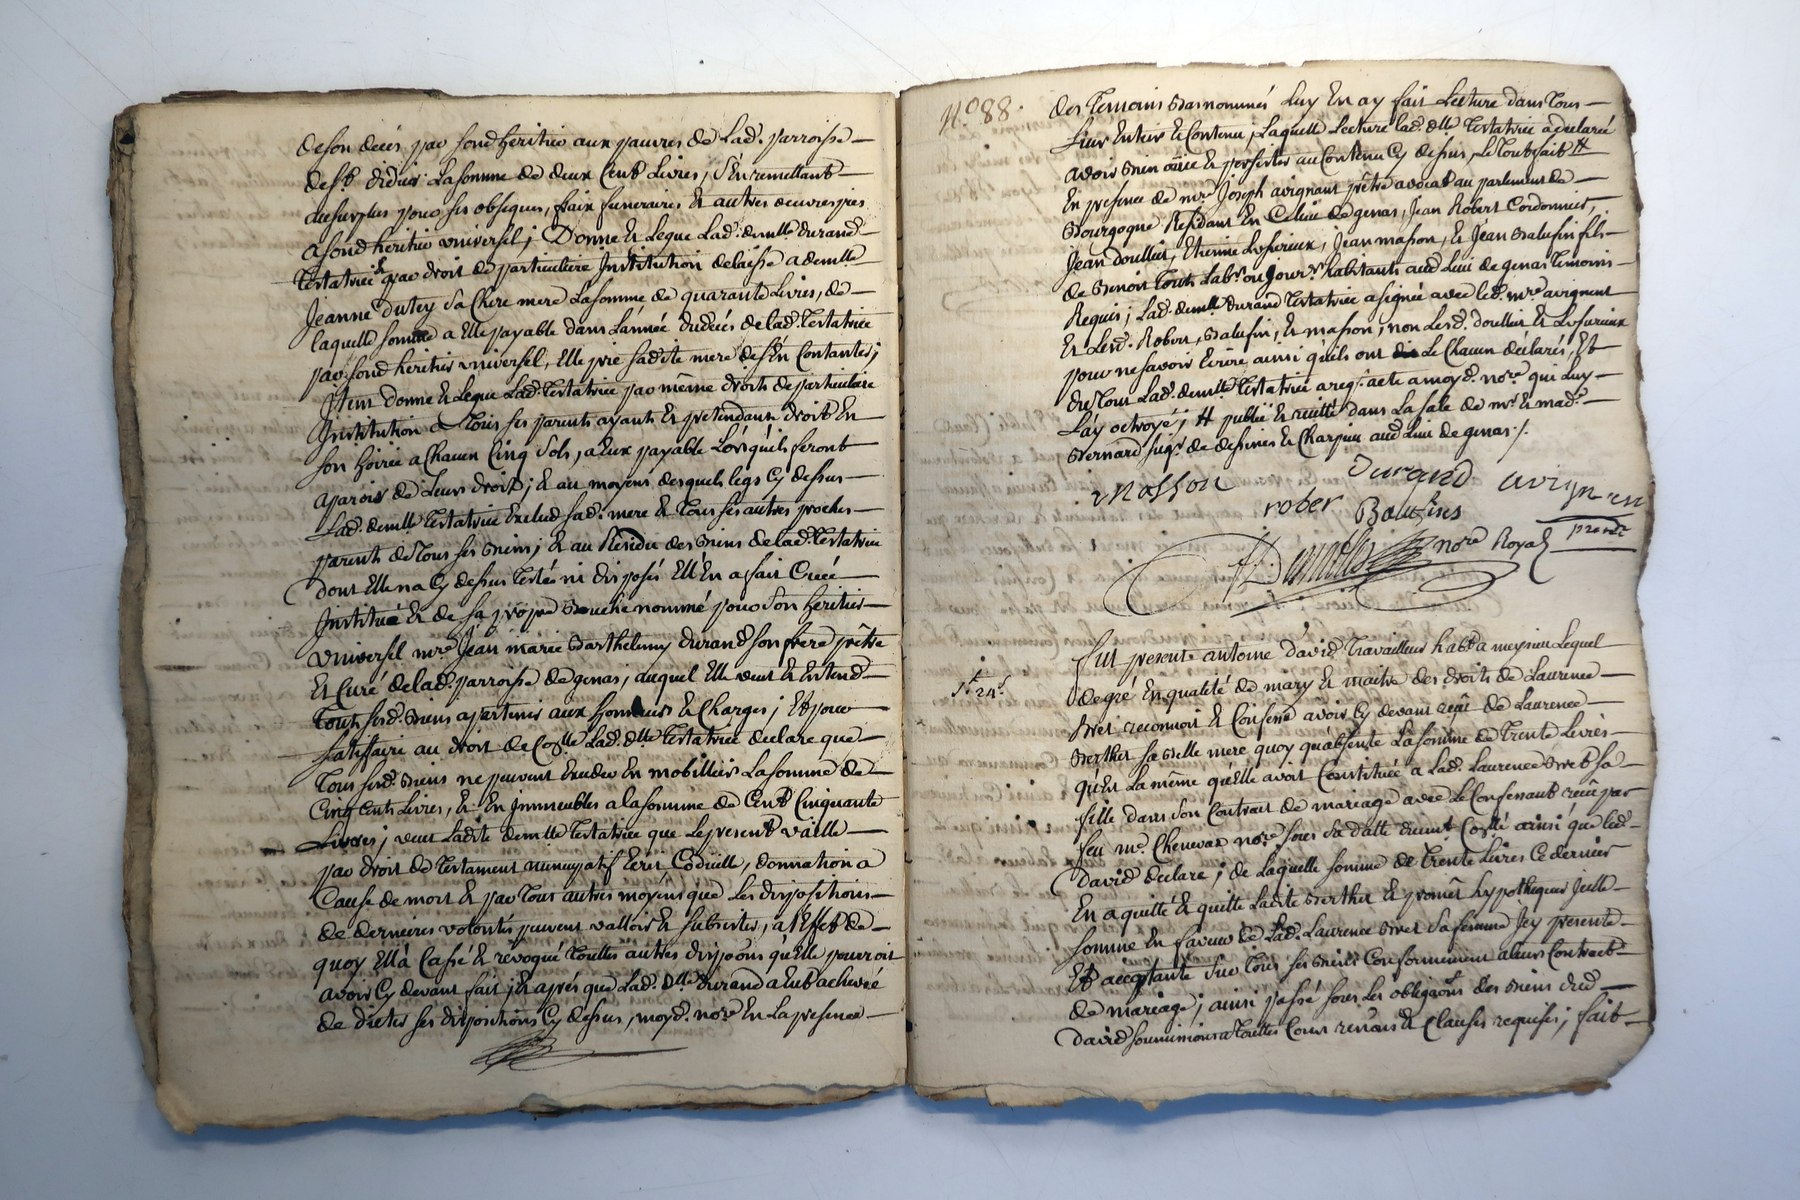 de son deces par son d. heritier aux pauvres de lad. parroisse
de st didier la somme de deux cent livres, s'en remettant
du surplus pour ses obseques, frais funeraires et autres oeuvres pies
a son d heritier universel; Donne et legue lad. demlle durand
testatrice et par droit de particuliere institution delaisse a demlle
Jeanne dutey sa chere mere la somme de quarante livres, de
laquelle somme a elle payable dans l'année du deces de lad. testatrice
par son d heritier universel, elle prie sadite mere de s'en contanter;
Item donne et legue lad. testatrice par même droit de particuliere
institution a tous ses parents ayants et pretendants droit en
son hoirie a chacun cinq sols, a eux payable lorsqu'ils feront
aparoir de leurs droits; et au moyens desquels legs cy dessus
lad. demlle testatrice exclud sad. mere et tous ses autres proches
parents de tous ses biens; et au residu des biens de lad. testatrice
dont elle na cy dessus testé ni disposé ell'en a fait créé
institué et de sa propre bouche nommé pour son heritier
universel mre Jean marie Barthelemy durand son frere prêtre
et curé de lad. parroisse de genas, auquel elle veut et entend
tous sesd. biens apartenir aux honneurs et charges; et pour
satisfaire au droit de coslle lad. dlle testatrice declare que
tous sesd. biens ne peuvent exceder en mobiliers la somme de
cinq cents livres, et en immeubles a la somme de cent cinquante
livres; veut ladite demlle testatrice que le present vaille
par droit de testament nuncupatif ecrit, codicille, donnation a
cause de mort et par tous autres moyens que les dispositions
de dernieres volontés peuvent valloir et subsister, a l'effet de
quoy ell'a cassé et revoqué touttes autres dispoons qu'elle pourroit
avoir cy devant fait; et après que lad. Dlle durand a eut achevé
de dicter ses dispositions cy dessus, moyd. nore en la presence
N.o 88.
des temoins bas nommés luy en ay fait lecture dans tous
leur entier et contenu; laquelle lecture lad. dlle testatrice a declaré
avoir bien ouïe et persister au contenu cy dessus, le tout fait #
en presence de mre Joseph avignant prêtre avocat au parlement de
Bourgogne residant en ce lieu de genas, Jean Robert Cordonnier,
Jean doullier, Etienne Lesurieux, Jean masson, et Jean Balufin fils
de Benoit tous labrs ou jours habitants aud lieu de genas temoins
requis; lad. demlle durand testatrice a signée avec led. mre avignant
et lesd. Robert, Balufin, et masson, non lesd. doullier et lesurieux
pour ne savoir ecrire ainsi qu'ils ont le chacun declarés, et
du tout lad. demlle testatrice a req. acte a moyd. nore qui luy
l'ay octroyé; # publié et recitté dans la sale de mr et made
Bernard seigr de dessines et Charpieu aud lieu de genas /.
masson
Durand
avignan
rober
prtre
nore Royal
1t 24s
Fut present antoine david travailleur habt a meysieu lequel
de gré en qualité de mary et maitre des droits de Laurence
Bret reconnoit et confesse avoir cy devant reçu de Laurence
Berthet sa belle mere quoy qu'absente la somme de trente livres
qu'est la même qu'elle avoit constituée a lad. Laurence Bret sa
fille dans son contract de mariage avec le confessant recu par
feu me. Chenevaz nore sous sa datte deument coslé ainsi que led.
david declare; de laquelle somme de trente livres ce dernier
en a quitté et quitte ladite Berthet et promet hypothequer icelle
somme en faveur de lad. Laurence Bret sa femme icy presente
et acceptante sur tous ses biens conformément a leur contract
de mariage; ainsi passé sous les obligaons des biens dud.
david soumissions a touttes cours renons et clauses requises; fait